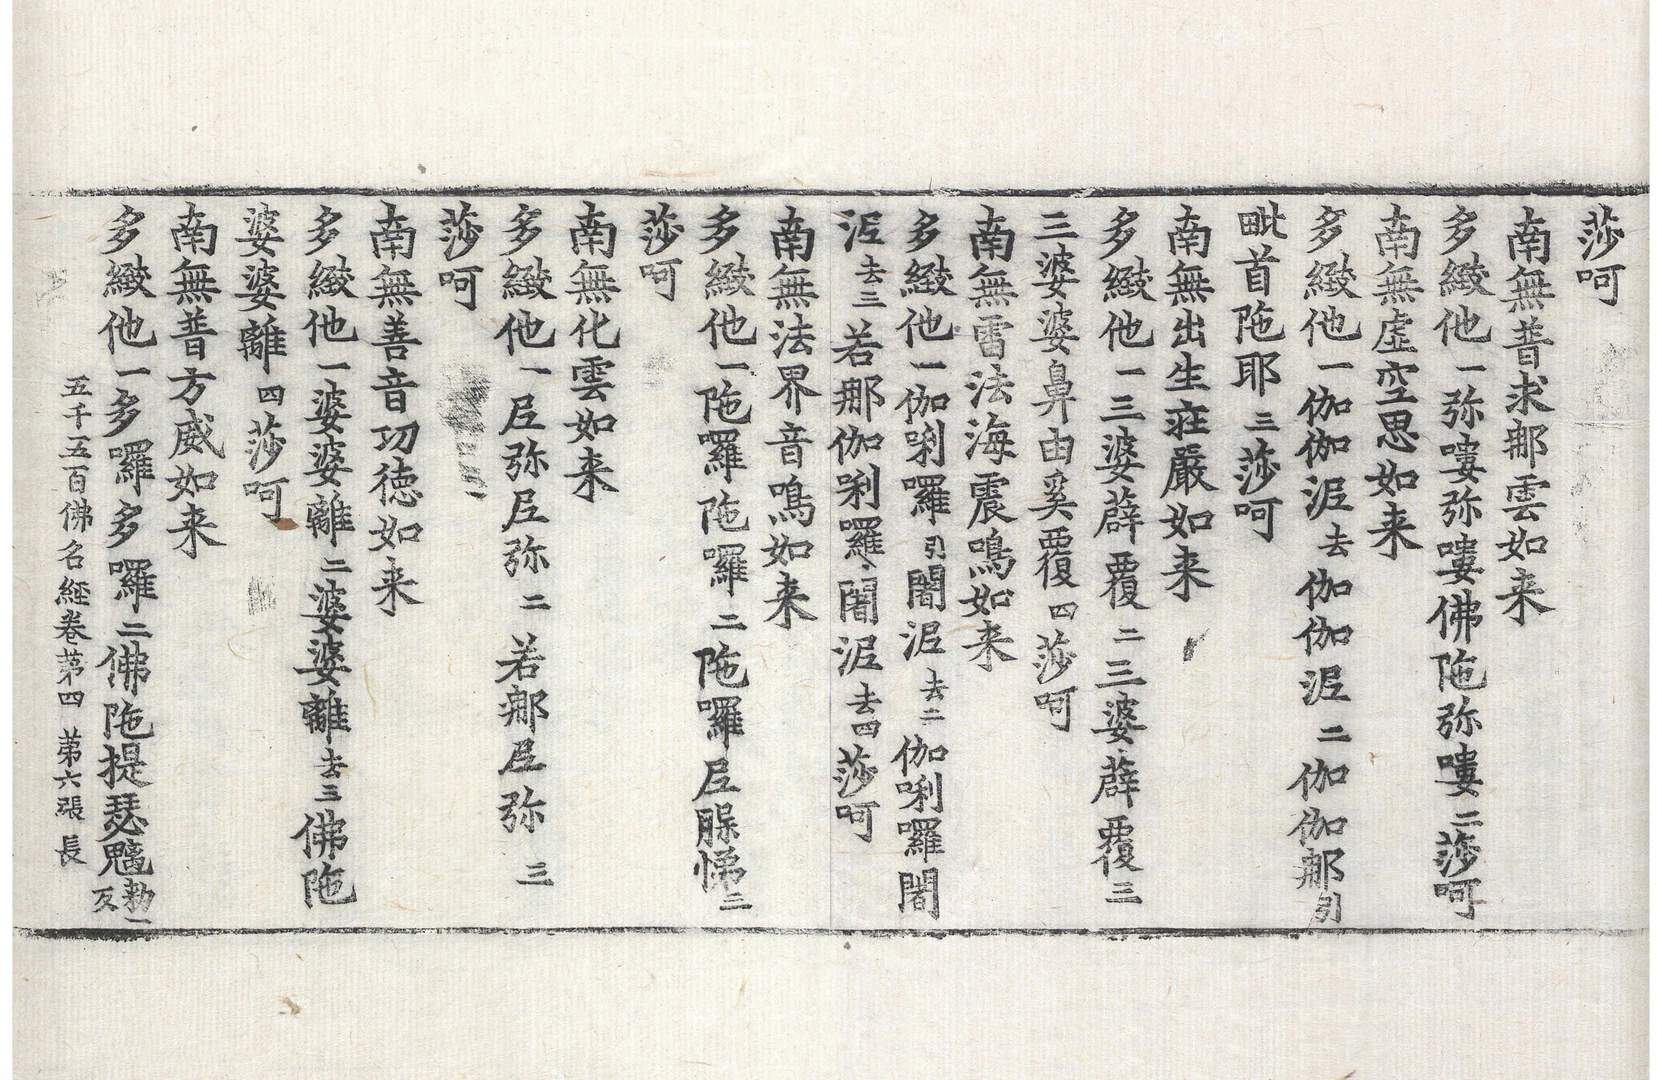 莎呵
南無普求那雲如来
多緻他一弥嘍弥嘍佛陁弥嘍二莎呵
南無虛空思如来
多緻他一伽伽泥去伽伽泥二伽伽那引
毗首陁耶三莎呵
南無出生莊嚴如来
多緻他一三婆薜覆二三婆薜覆三
三婆婆鼻由奚覆四莎呵
南無雷法海震鳴如来
多緻他一伽唎囉引闍泥去二伽唎囉闍
泥去三若那伽唎囉闍泥去四莎呵
南無法界音鳴如来
多緻他一陁囉陁囉二陁囉尼脲悌三
莎呵
南無化雲如来
多緻他一尼弥尼弥二若那尼弥三
莎呵
南無善音功德如来
多緻他一婆婆離二婆婆離去三佛陁
婆婆離四莎呵
南無普方威如来
多緻他一多囉多囉二佛陁提瑟魑勑一反
五千五百佛名經卷第四 第六張 長